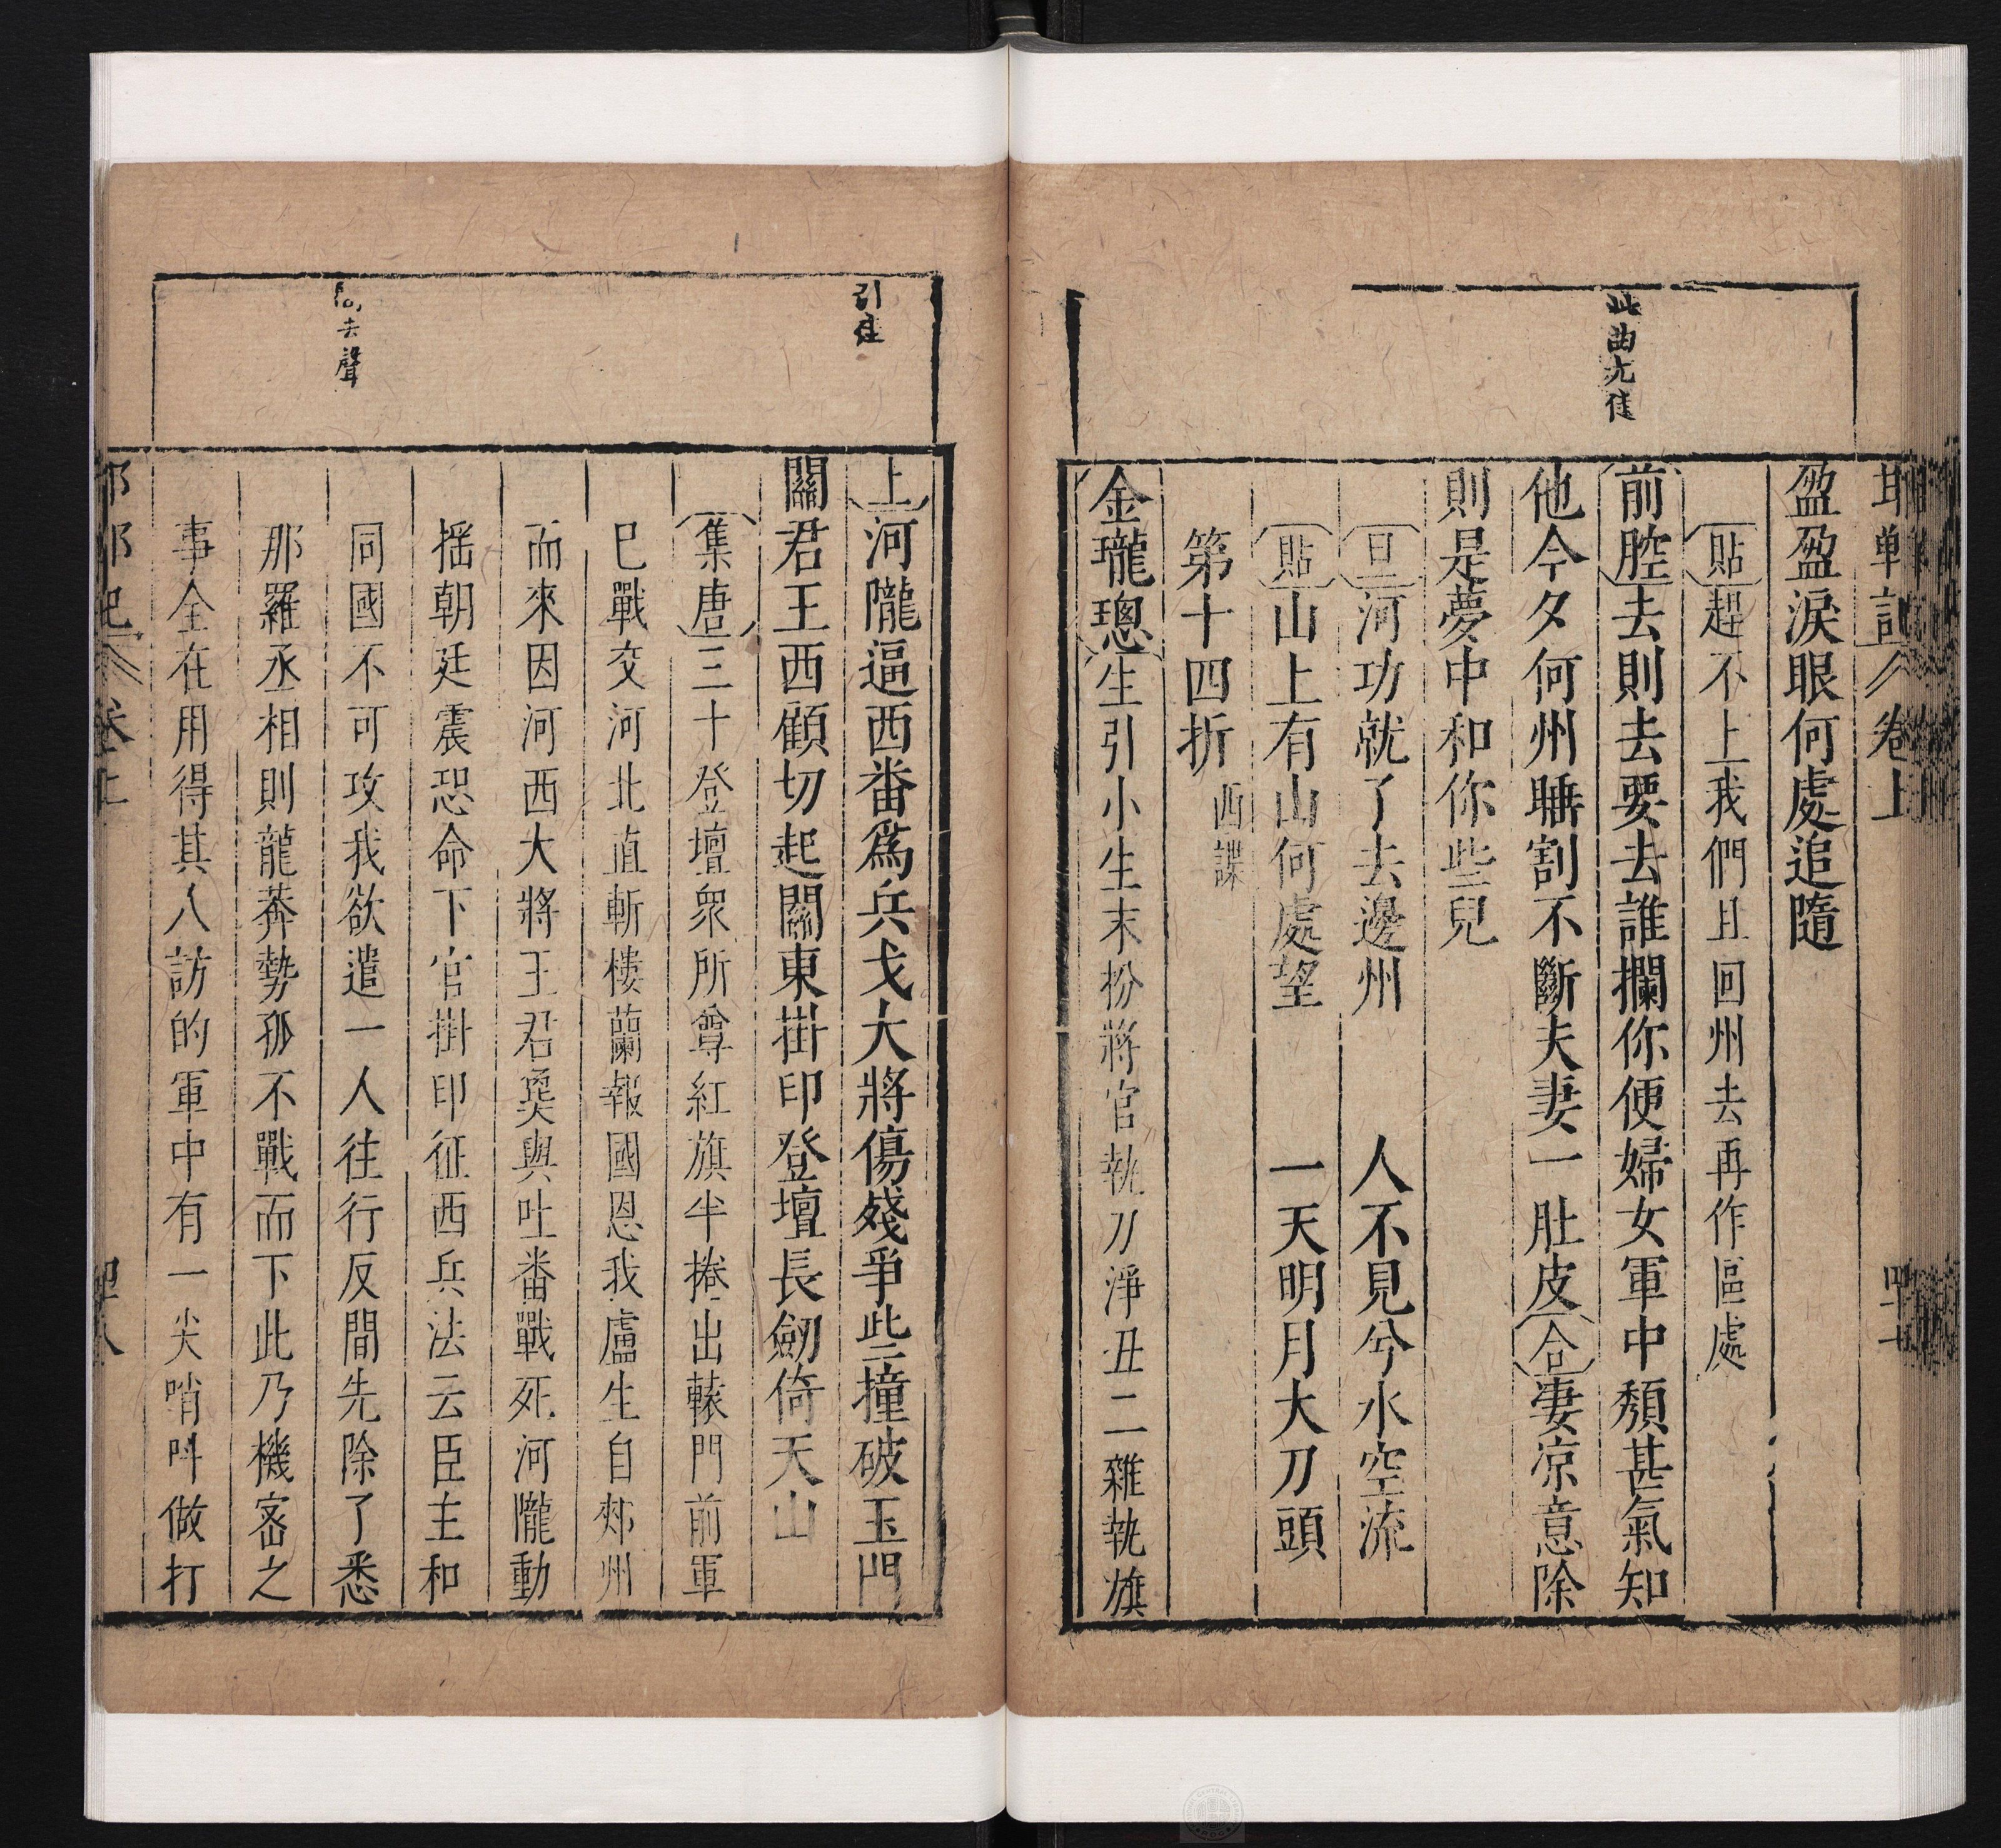 此曲尤佳
邯鄲記 卷上
盈盈淚眼何處追隨
貼趕不上我們且回州去再作區處
前腔去則去要去誰攔你便婦女軍中頹甚氣知
他今夕何州睡割不斷夫妻一肚皮合悽涼意除
則是夢中和你些兒
旦河功就了去邊州 人不見兮水空流
貼山上有山何處望 一天明月大刀頭
第十四折 西諜
金瓏璁生引小生末扮將官執刀淨丑二雜執旗
引佳
間去聲
上河隴逼西番爲兵戈大將傷殘爭些撞破玉門
關君王西顧切起關東掛印登壇長劒倚天山
集唐三十登壇衆所尊紅旗半捲出轅門前軍
已戰交河北直斬樓蘭報國恩我盧生自郟州
而來因河西大將王君㚟與吐番戰死河隴動
搖朝廷震恐命下官掛印征西兵法云臣主和
同國不可攻我欲遣一人往行反間先除了悉
那羅丞相則龍莽勢孤不戰而下此乃機密之
事全在用得其人訪的軍中有一尖哨呌做打
卷上